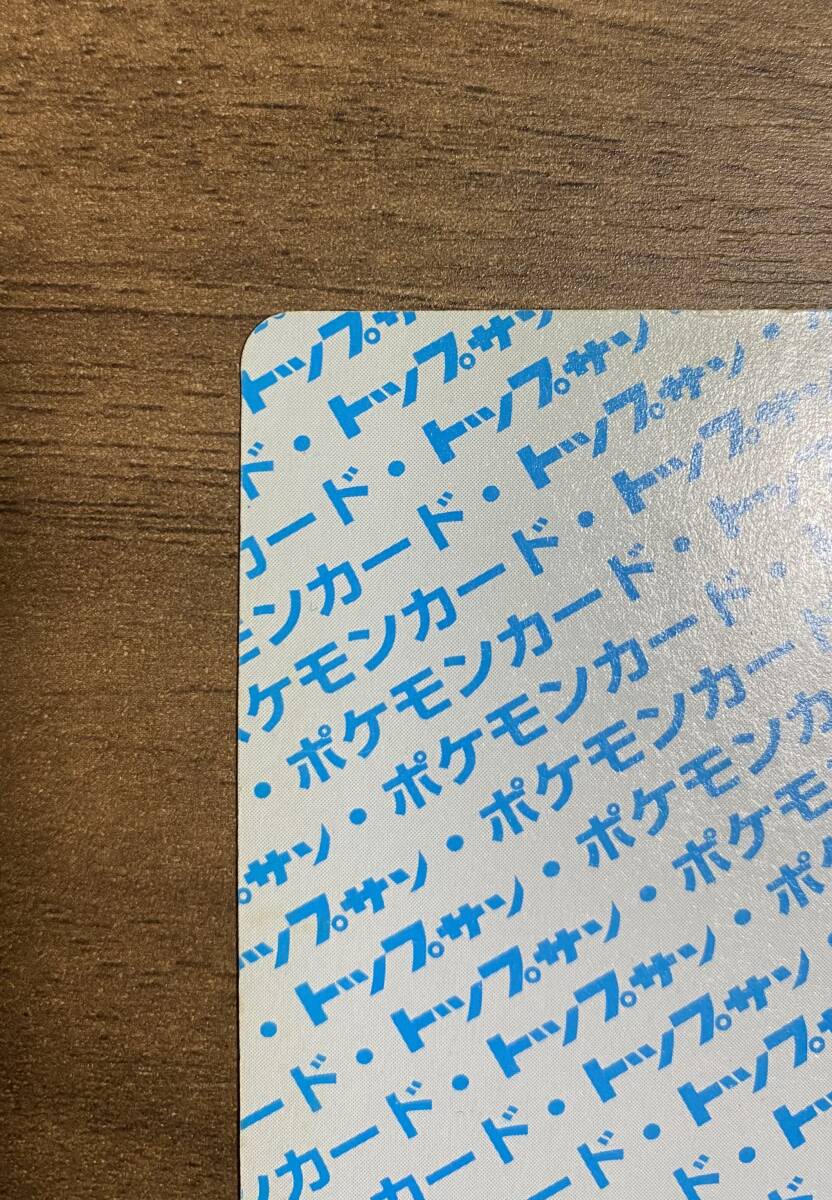 トップサ
ド・トップサン
カード・トップサン・
モンカード・トップサン・
ポケモンカード・トップサン
・ポケモンカード・トップ
プサン・ポケモンカード・
トップサン・ポケモンカード
・トップサン・ポケモンカ
ード・トップサン・ポケモ
ンカード・トップサン・ポケ
カード・トップサン・
ード・トップサン
ド・ト